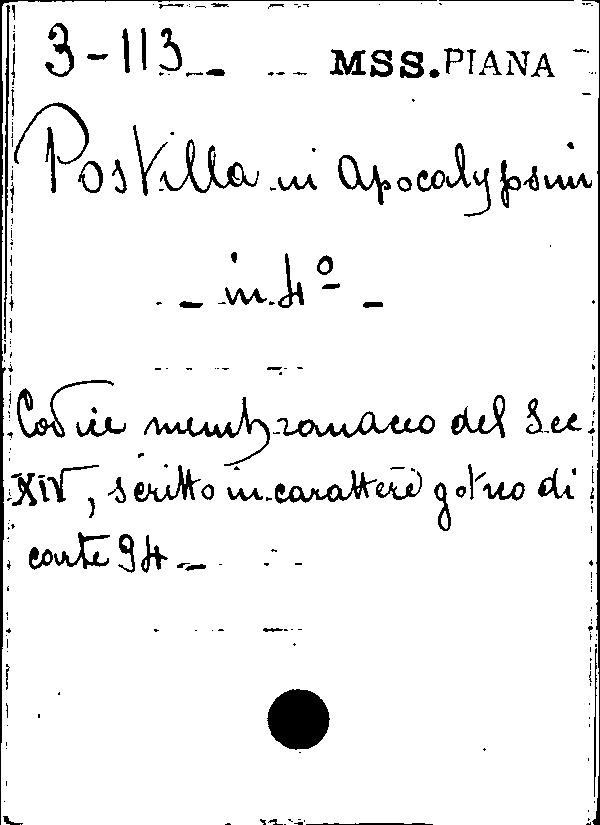 3-113 MSS. PIANA
Postilla in Apocalypsim
- in 4º -
Codice membranaceo del Sec.
XIV, scritto in carattere gotico di
carte 94 -